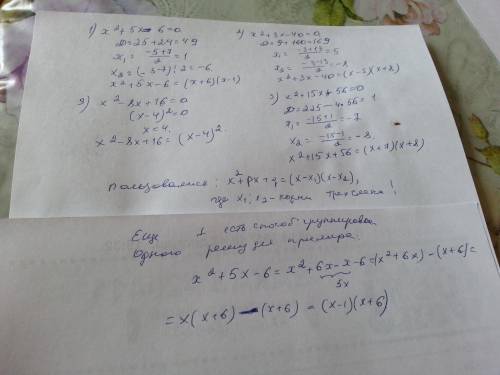 1) x²+5x-6=0
D=25+24=49
x₁ = (-5+7)/2 = 1
x₂ = (-5-7)/2 = -6
x²+5x-6=(x+6)(x-1)
2) x²+3x-40=0
D=9+160=169
x₁ = (-3+13)/2 = 5
x₂ = (-3-13)/2 = -8
x²+3x-40=(x-5)(x+8)
3) x²-8x+16=0
(x-4)²=0
x=4
x²-8x+16=(x-4)²
x²+15x+56=0
D=225-4·56=1
x₁ = (-15+1)/2 = -7
x₂ = (-15-1)/2 = -8
x²+15x+56=(x+7)(x+8)
Пользовались: x²+px+q=(x-x₁)(x-x₂),
где x₁, x₂-корни трехчлена!
Еще 1 есть способ группировки
Одного решу для примера:
x²+5x-6=x²+6x-x-6=(x²+6x)-(x+6)=
5x
=x(x+6)-(x+6)=(x-1)(x+6)